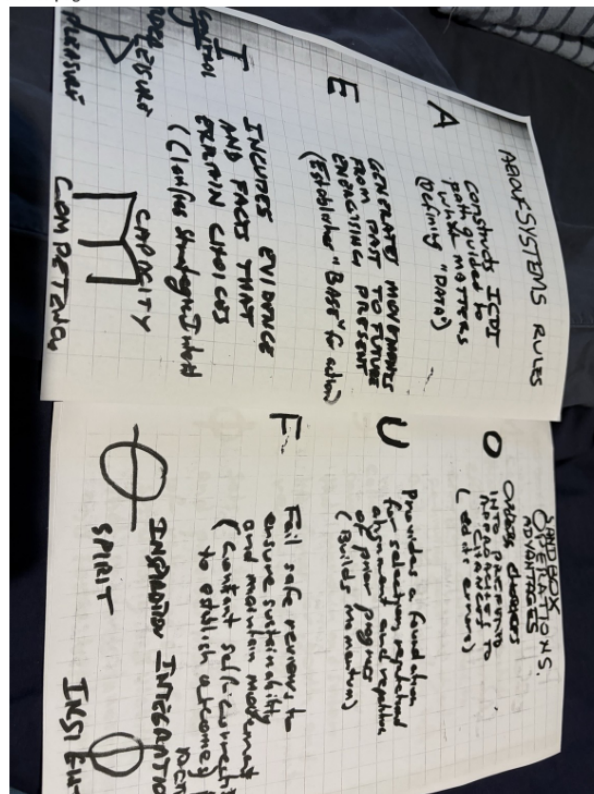 ABOUT SYSTEMS RULES
A
Constructs ICDI
path guided to
what MATTERS
(Defining "DATA")
E
GENERATES MOVEMENTS
FROM PAST TO FUTURE
ENERGISING PRESENT
(Establishes "BASE" for action)
I
INCLUDES EVIDENCE
AND FACTS THAT
EXPLAIN CHOICES
(Clarifies Strategic Intent)
PLEASURE
CAPACITY
SANDBOX
OPERATIONS.
ADVANTAGES
O
INTO
TO
CHANGE
(edits errors)
U
Provides a foundation
for selection,
alignment and
of prior progress
(Builds momentum)
F
Fail safe reviews to
ensure sustainability
and maintain movement
(Constant self-correct
to establish outcomes)
INSPIRATION INTEGRATIO
SPIRIT
INSIGH